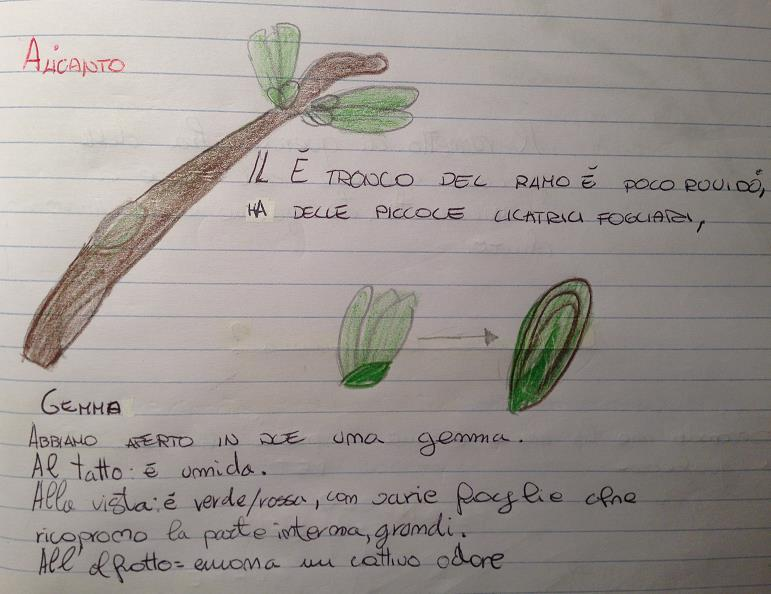 ALICANTO
IL È TRONCO DEL RAMO È POCO ROVIDO,
HA DELLE PICCOLE CICATRICI FOGLIARI,
GEMMA
ABBIAMO APERTO IN DUE una gemma.
Al tatto: è umida.
Alla vista: è verde/rossa, con varie foglie che
ricoprono la parte interna, grandi.
All'olfatto = emana un cattivo odore